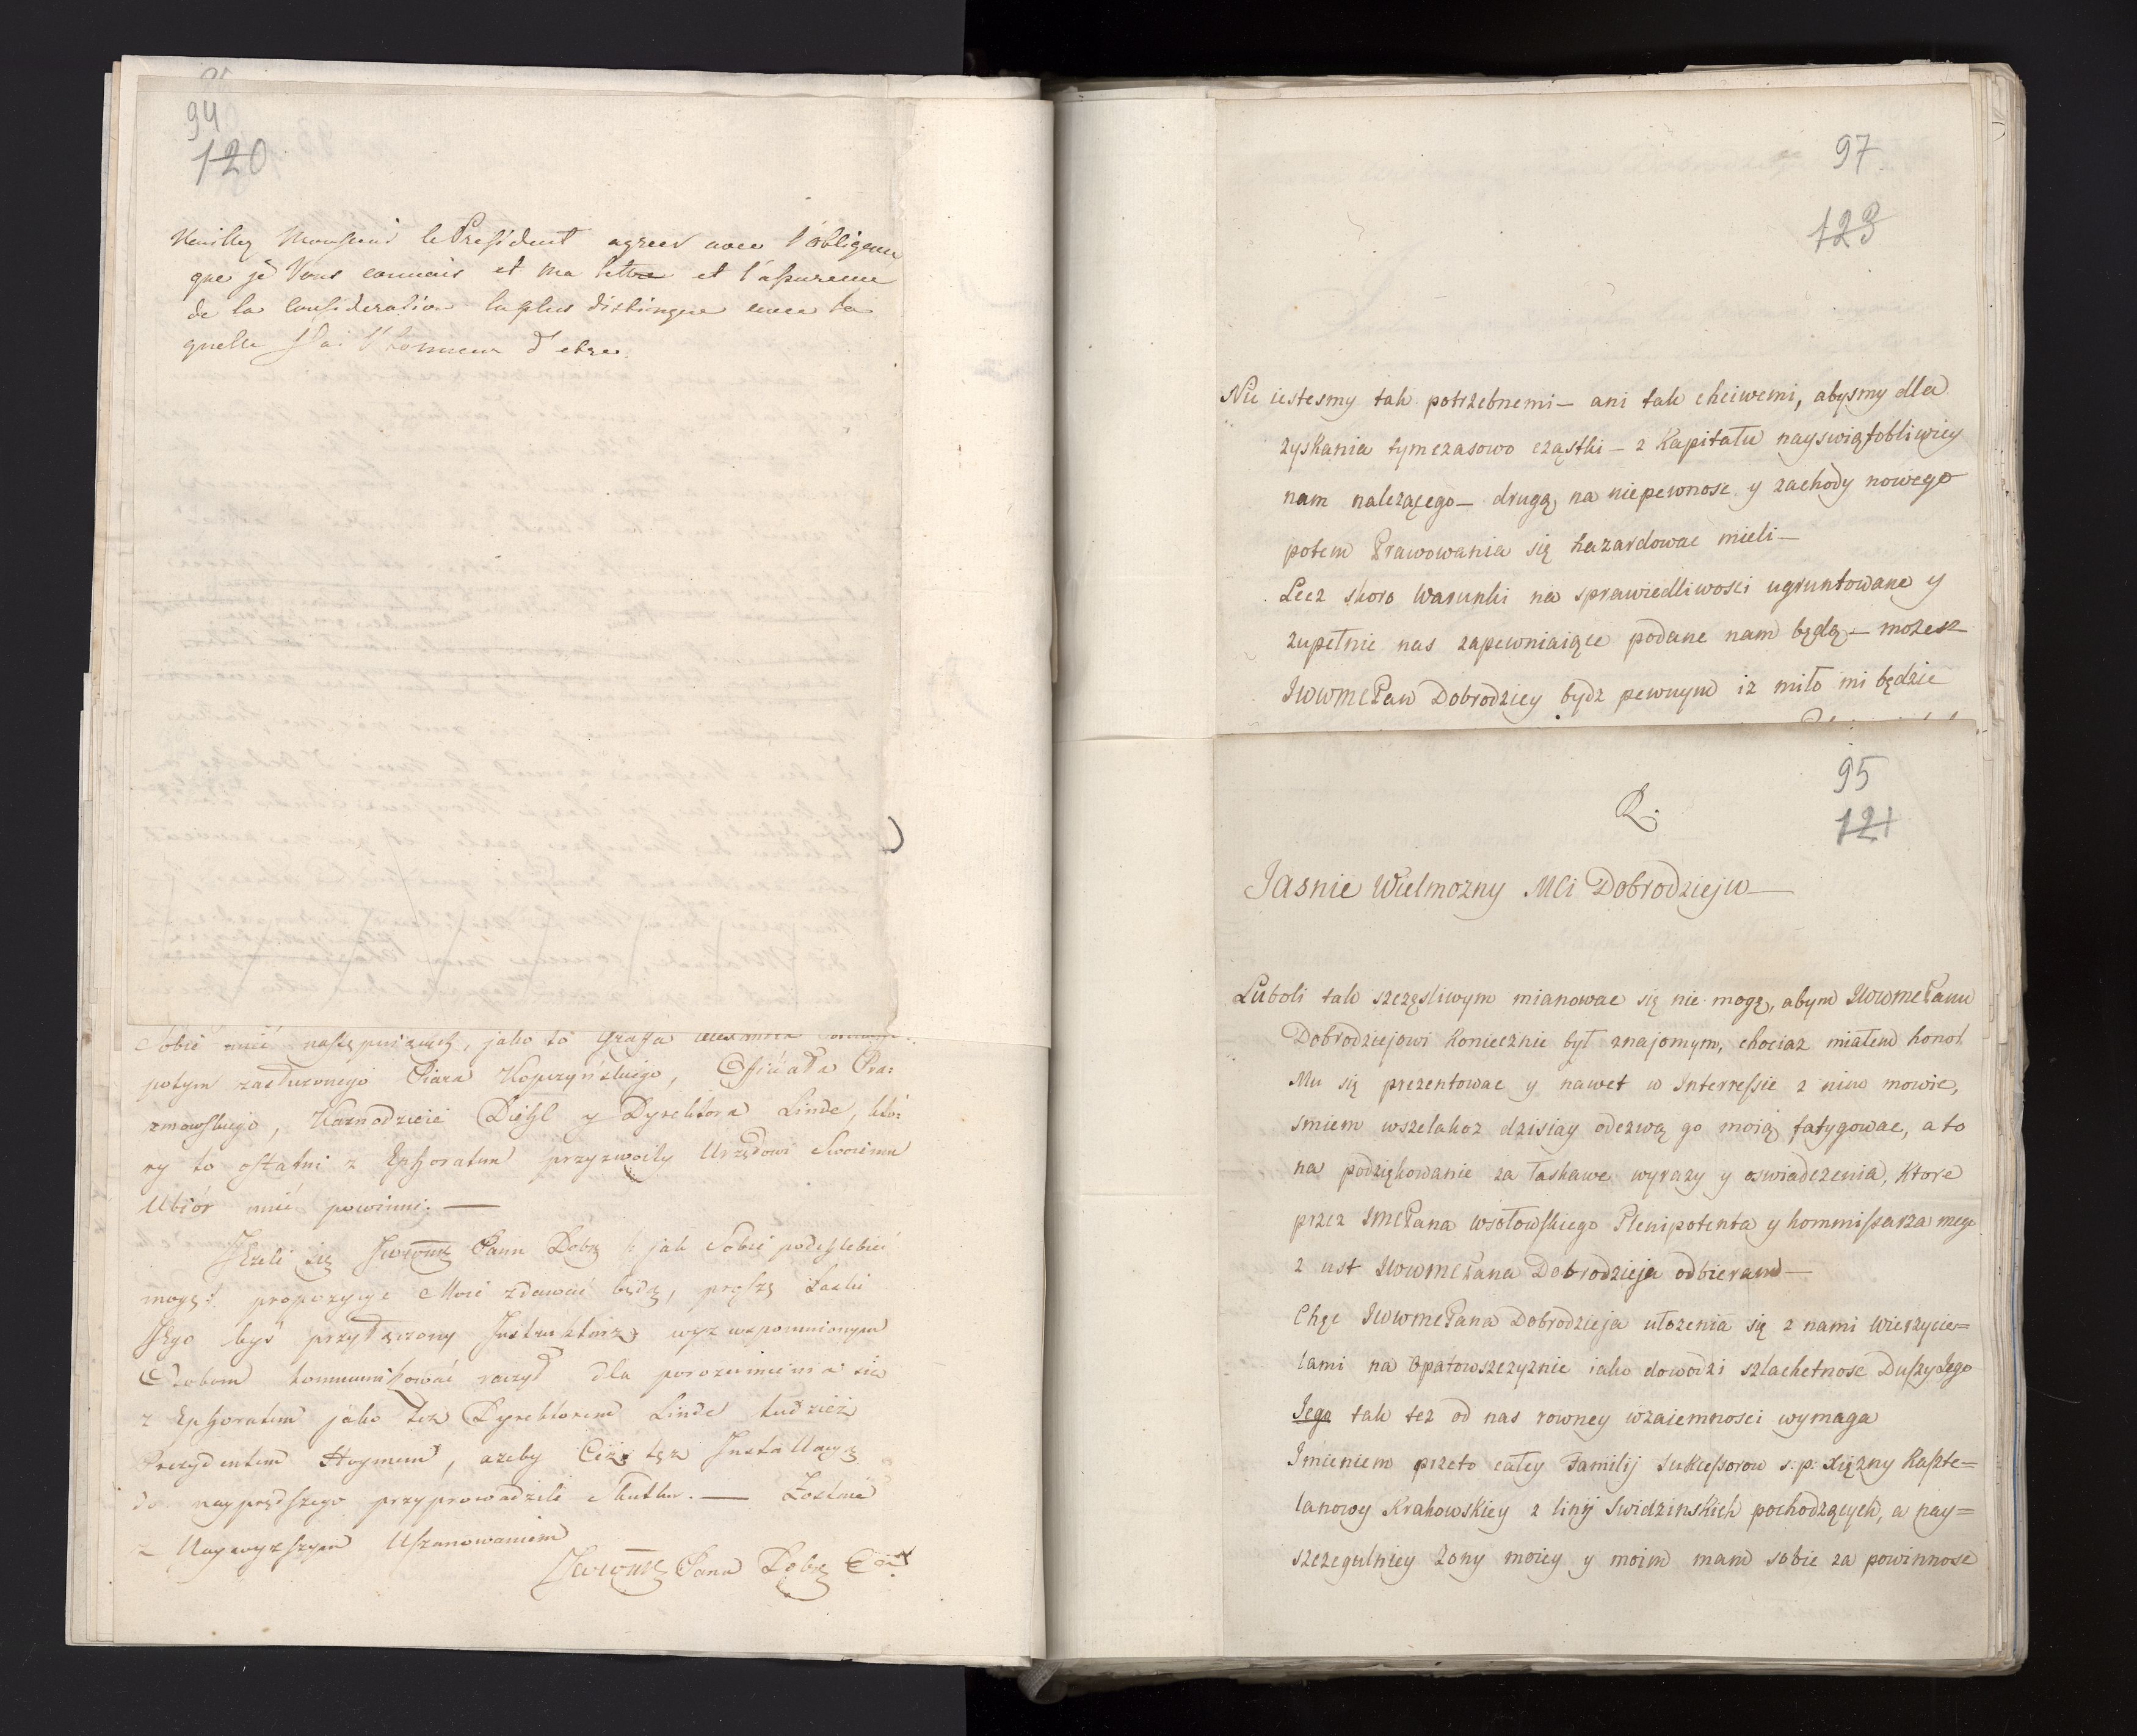 94
120
Veuillez Monsieur le President agreer avec l'obligeance
que je Vous connais et ma lettre et l'assurence
de la Consideration la plus distingue avec la
quelle J'ai l'honneur d'etre
Sobie mieć następuiących, jako to Grafa
potym zasłużonego Piara Kopczyńskiego, Officiała Pra:
zmowskiego, Kaznodzieie Diehl y Dyrektora Linde, któ:
ry to ostatni z Ephoratem przyzwoity Urzędowi Swoiemu
Ubiór mieć powinni. —
Jeżeli się Jwwmć Panu Dobrz: jak Sobie pochlebić
mogę propozycye Moie zdawać będą, proszę Łaski
Jego być przyłączoną Instrukturę wyż wspomnionym
Osobom kommunikować raczył dla porozumienia się
z Ephoratem jako też Dyrektorem Linde tudzież
Prezydentem Hoymem, ażeby Ciż tęż Installacyą
do nayprędszego przyprowadzili skutku. — Zostaię
z Naywyższym Uszanowaniem
Jwwmć Pana Dobrz
97
123
Nie iestesmy tak potrzebnemi — ani tak chciwemi, abysmy dla
zyskania tymczasowo cząstki — z Kapitału nayswiątobliwiey
nam należącego — drugą na niepewnosc y zachody nowego
potem Prawowania się hazardowac mieli —
Lecz skoro Warunki na sprawiedliwosci ugruntowane y
zupełnie nas zapewniaiące podane nam będą — możesz
JWWMCPan Dobrodziey bydz pewnym iz miło mi będzie
95
121
Jasnie Wielmozny MCi Dobrodzieju —
Luboli tak szczęsliwym mianowac się nie mogę, abym JWWMCPanu
Dobrodziejowi koniecznie był znajomym, chociaz miałem honor
Mu się prezentowac y nawet w Interressie z nim mowic,
smiem wszelakoz dzisiay odezwą go moią fatygowac, a to
na podziękowanie za łaskawe wyrazy y oswiadczenia, ktore
przez JMCPana Wsołowskiego Plenipotenta y kommissarza mego
z ust JWWMCPana Dobrodzieja odbieram —
Chęc JWWMCPana Dobrodzieja ułozenia się z nami Wierzycie=
lami na Opatowszczyznie iako dowodzi szlachetnosc Duszy Jego
Jego tak tez od nas rowney wzaiemnosci wymaga
Imieniem przeto całey Familij Sukcessorow s: p: Xiężny Kaszte=
lanowy Krakowskiey z linij Swidzinskich pochodzących, a nay=
szczegulniey Zony moiey y moim mam sobie za powinnosc